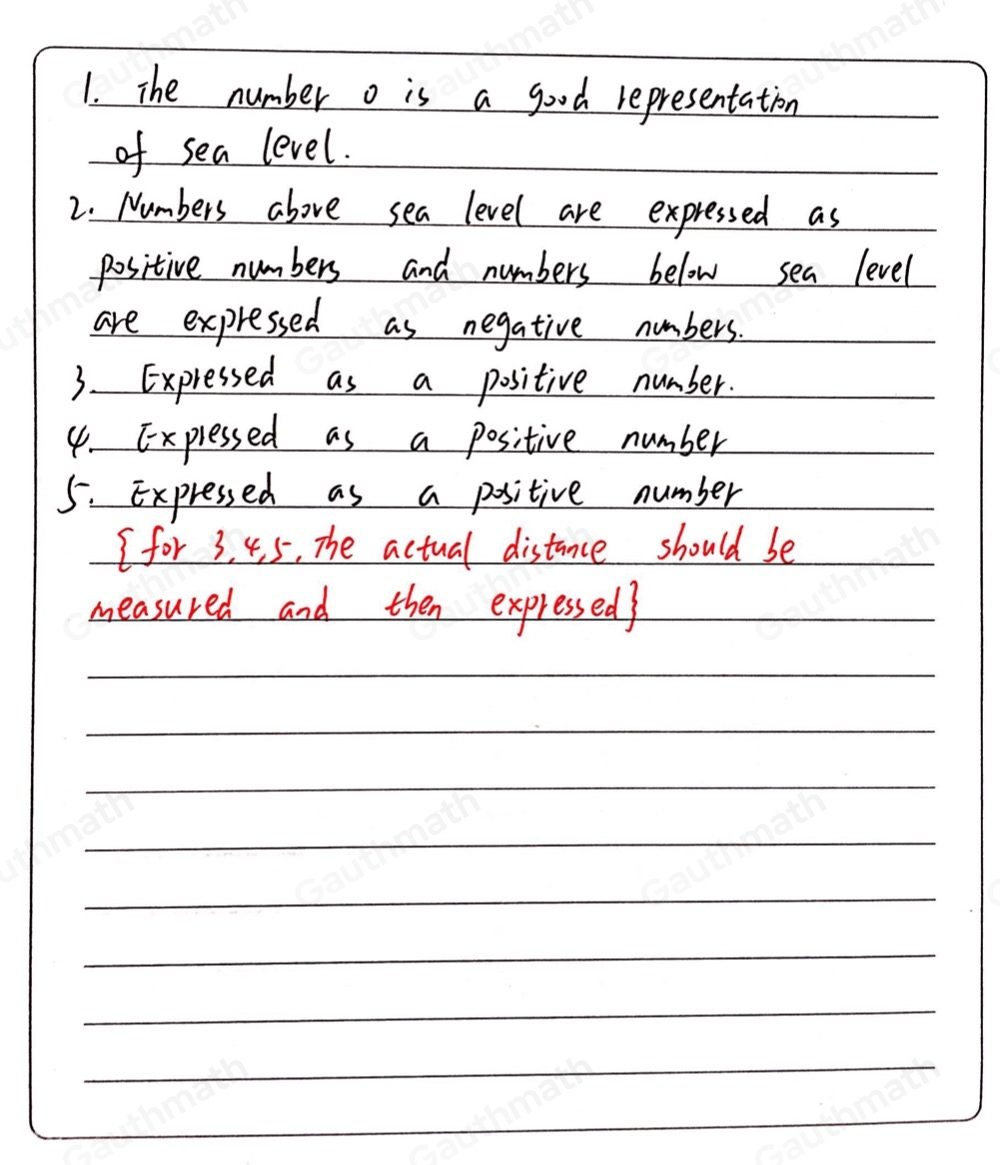 1. The number 0 is a good representation
of sea level.
2. Numbers above sea level are expressed as
positive numbers and numbers below sea level
are expressed as negative numbers.
3. Expressed as a positive number.
4. Expressed as a positive number
5. Expressed as a positive number
{for 3,4,5, The actual distance should be
measured and then expressed}